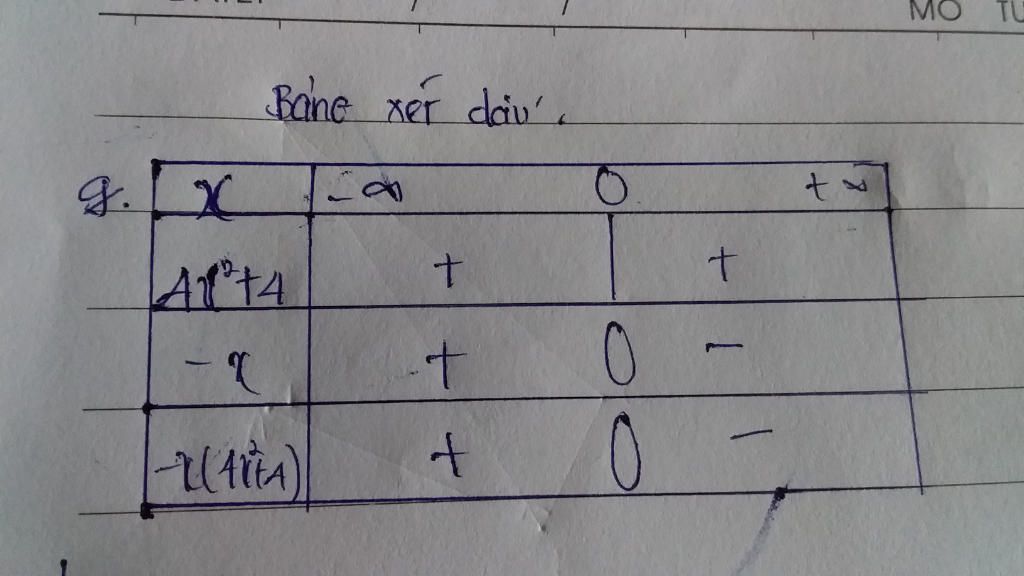 MO TU
Bảng xét dấu.
g. x -∞ 0 +∞
4x²+4 + | +
-x + 0 -
-x(4x²+4) + 0 -